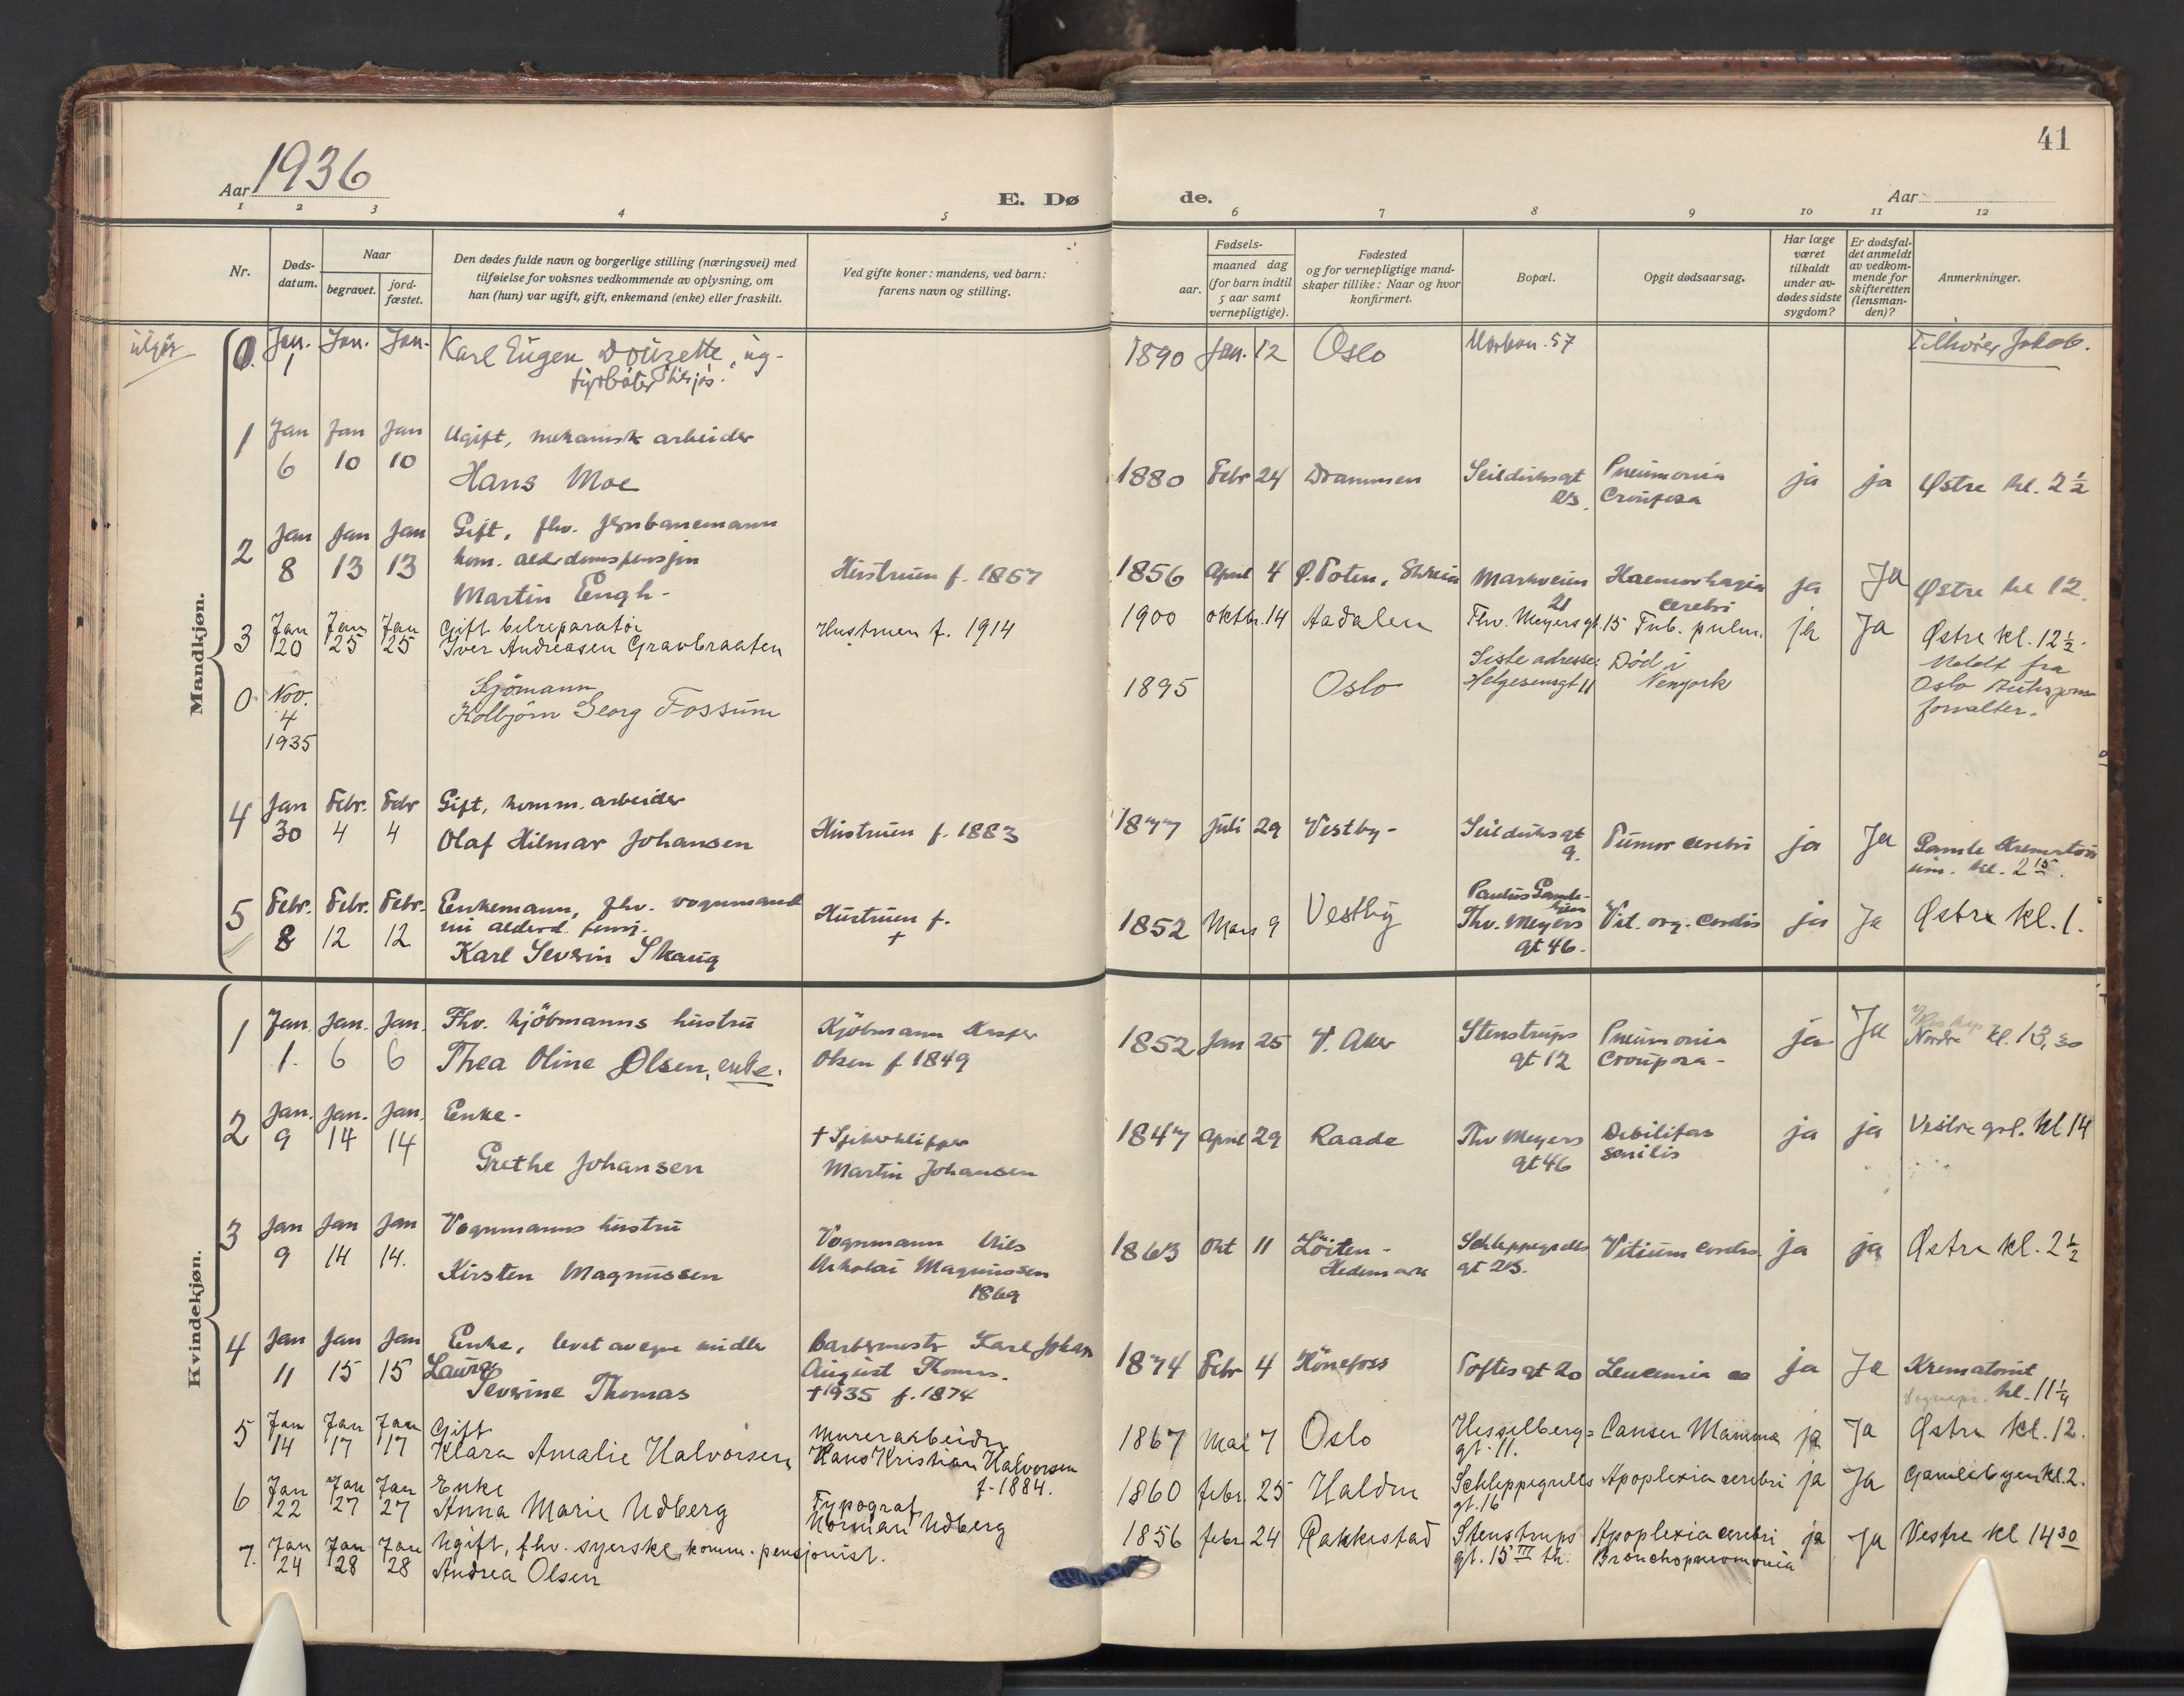 41
Aar 1936
E. Dø de.
Aar
1 2 3 4 5 6 7 8 9 10 11 12
Nr.
Døds-
datum.
Naar
begravet.
jord-
fæstet.
Den dødes fulde navn og borgerlige stilling (næringsvei) med
tilføielse for voksnes vedkommende av oplysning, om
han (hun) var ugift, gift, enkemand (enke) eller fraskilt.
Ved gifte koner: mandens, ved barn:
farens navn og stilling.
Fødsels-
aar.
maaned dag
(for barn indtil
5 aar samt
vernepligtige).
Fødested
og for vernepligtige mand-
skaper tillike: Naar og hvor
konfirmert.
Bopæl.
Opgit dødsaarsag.
Har læge
været
tilkaldt
under av-
dødes sidste
sygdom?
Er dødsfal-
det anmeldt
av vedkom-
mende for
skifteretten
(lensman-
den)?
Anmerkninger.
Mandkjøn.
utgår
0. Jan. Jan. Jan. Karl Eugen Douzette, ug- 1890 Jan. 12 Oslo 57 Tilhører Jakob.
1 fyrbøter
1 Jan Jan Jan Ugift, mekanisk arbeider
6 10 10 Hans Moe 1880 Febr 24 Drammen Seilduksgt Pneumonia ja ja Østre kl. 2 ½
Crouposa
2 Jan Jan Jan Gift, fhv. jernbanemann
8 13 13 kom. alderdomspensjon
Martin Engh- Hustruen f. 1867 1856 April 4 Ø. Toten, Skreia Markveien 21 Haemorhagia cerebri ja Ja Østre kl 12.
3 Jan Jan Jan Gift bilreparatør
20 25 25 Iver Andreasen Gravbraaten Hustruen f. 1914 1900 oktbr. 14 Aadalen Thv. Meyersgt. 15 Tub. pulm. ja Ja Østre kl. 12 ½.
0 Nov. Sjömann
4 Kolbjörn Georg Fossum 1895 Oslo Siste adresse: Død i Meldt fra
1935 Helgesensgt 11 Newyork Oslo
forvalter.
4 Jan Febr. Febr Gift, komm. arbeider
30 4 4 Olaf Hilmar Johansen Hustruen f. 1883 1877 juli 29 Vestby- Seilduksgt 9. Tumor cerebri ja Ja Gamle Kremato
rium. kl. 2 15.
5 Febr. Febr. Febr. Enkemann, fhv. vognmand
8 12 12 nu alderd. pensj.
Karl Severin Skaug Hustruen f. † 1852 Mars 9 Vestby Paulus Gamle-
Thv. Meyers Vit. org. Cordis ja Ja Østre kl. 1.
gt 46.
Kvindekjøn.
1 Jan. Jan. Jan. Fhv. kjöbmanns hustru Kjöbmann Kasper
1. 6 6 Thea Oline Olsen, enke. Olsen f 1849 1852 Jan 25 V. Aker Stenstrups Pneumonia ja Ja Nordre kl. 13,30
gt 12 Crouposa-
2 Jan. Jan. Jan. Enke-
9 14 14 Grethe Johansen † Spikerklipper
Martin Johansen 1847 April 29 Raade Thv Meyers Debilitas ja ja Vestre grl. kl 14
gt 46 senilis
3 Jan Jan Jan Vognmanns hustru Vognmann Nils
9 14 14. Kirsten Magnussen Nikolai Magnussen
1869 1863 Okt 11 Löiten- Schleppegrells Vitium cordis ja ja Østre kl. 2 ½
Hedemark gt 23.
4 Jan Jan Jan Enke, levet av egne midler Barbermestr Karl Johan
11 15 15 Laura August Thomas.
Severine Thomas † 1935 f. 1874 1874 Febr 4 Hönefoss Toftesgt 20 Leucemia ja Ja Krematoriet
kl. 11 ¼
5 Jan Jan Jan Gift Murerarbeider
14 17 17 Klara Amalie Halvorsen Hans Kristian Halvorsen
f. 1884. 1867 Mai 7 Oslo Hesselberg= Canser Mamma ja Ja Østre kl. 12.
gt. 11.
6 Jan Jan Jan Enke Typograf
22 27 27 Anna Marie Udberg Udberg 1860 febr. 25 Halden Schleppegrells Apoplexia cerebri ja Ja Gamlebyen kl. 2.
gt. 16
7. Jan Jan Jan Ugift, fhv. syerske, komm. pensjonist.
24 28 28 Andrea Olsen 1856 febr 24 Rakkestad Stenstrups Apoplexia cerebri ja Ja Vestre kl 14 30
gt. 15 III th. Bronchopneumonia